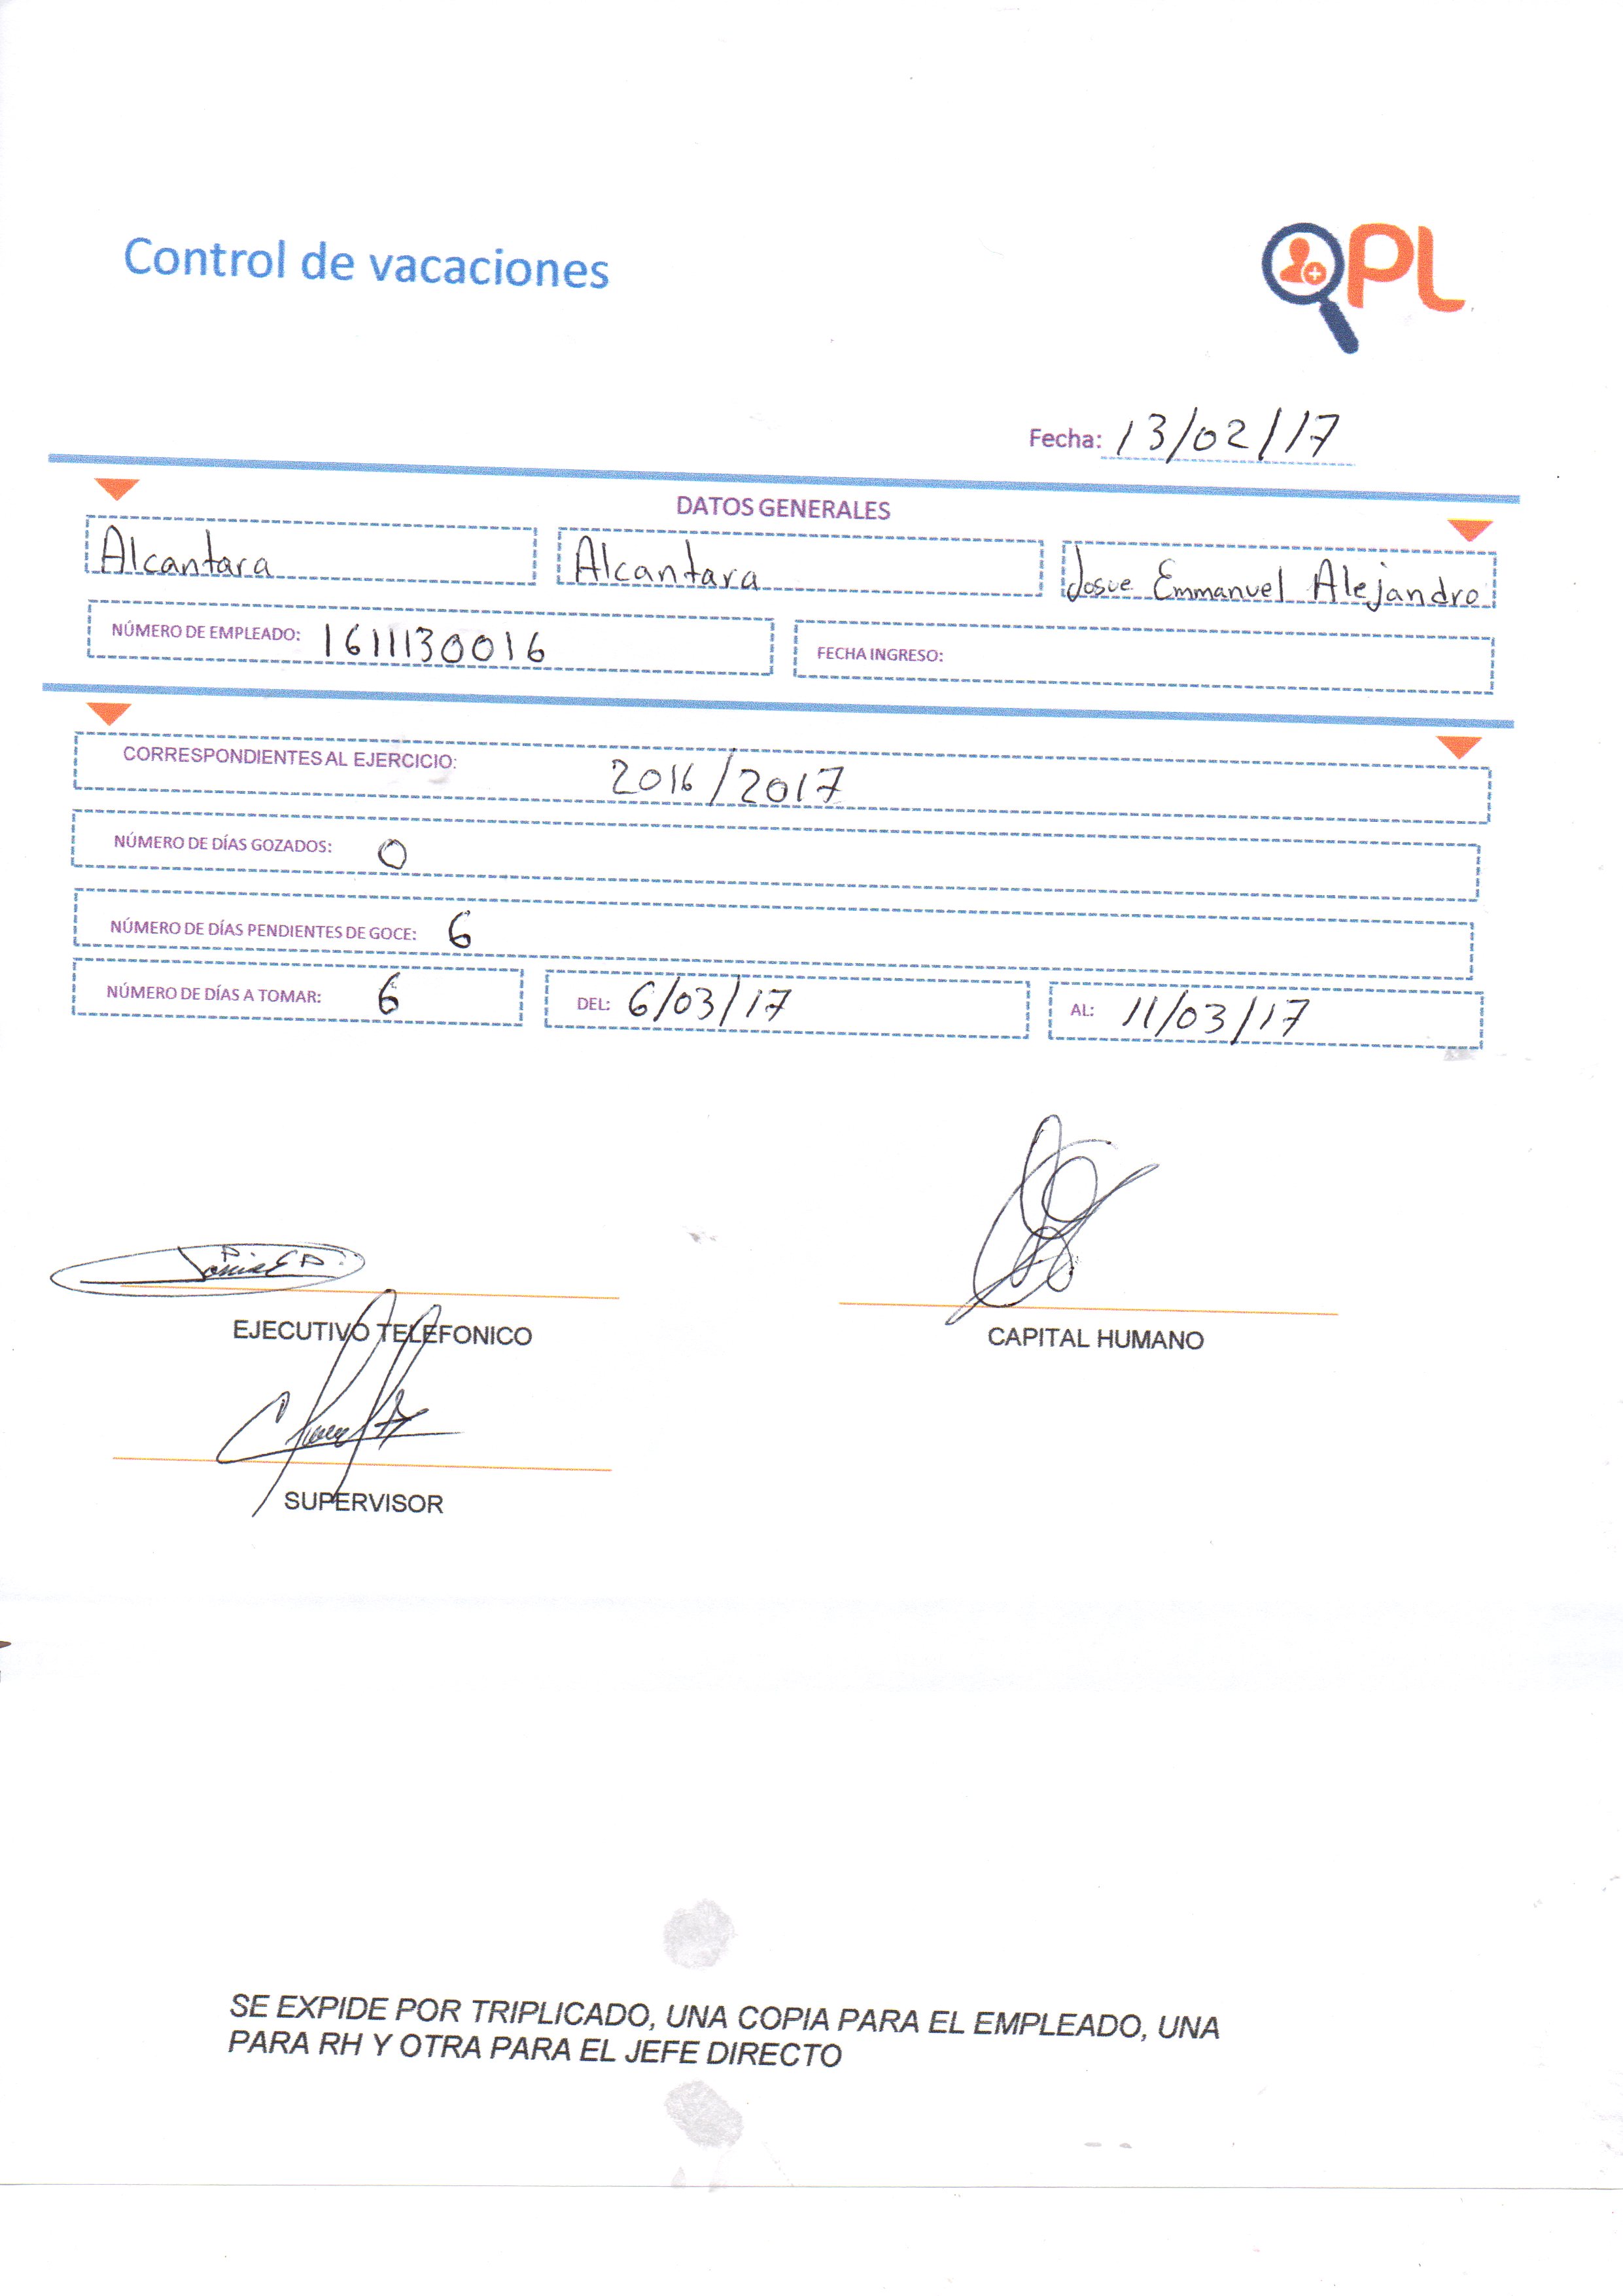 Control de vacaciones
QPL
Fecha: 13/02/17
DATOS GENERALES
Alcantara Alcantara Josue Emmanuel Alejandro
NÚMERO DE EMPLEADO: 1611130016 FECHA INGRESO:
CORRESPONDIENTES AL EJERCICIO: 2016/2017
NÚMERO DE DÍAS GOZADOS: 0
NÚMERO DE DÍAS PENDIENTES DE GOCE: 6
NÚMERO DE DÍAS A TOMAR: 6 DEL: 6/03/17 AL: 11/03/17
EJECUTIVO TELEFONICO CAPITAL HUMANO
SUPERVISOR
SE EXPIDE POR TRIPLICADO, UNA COPIA PARA EL EMPLEADO, UNA
PARA RH Y OTRA PARA EL JEFE DIRECTO